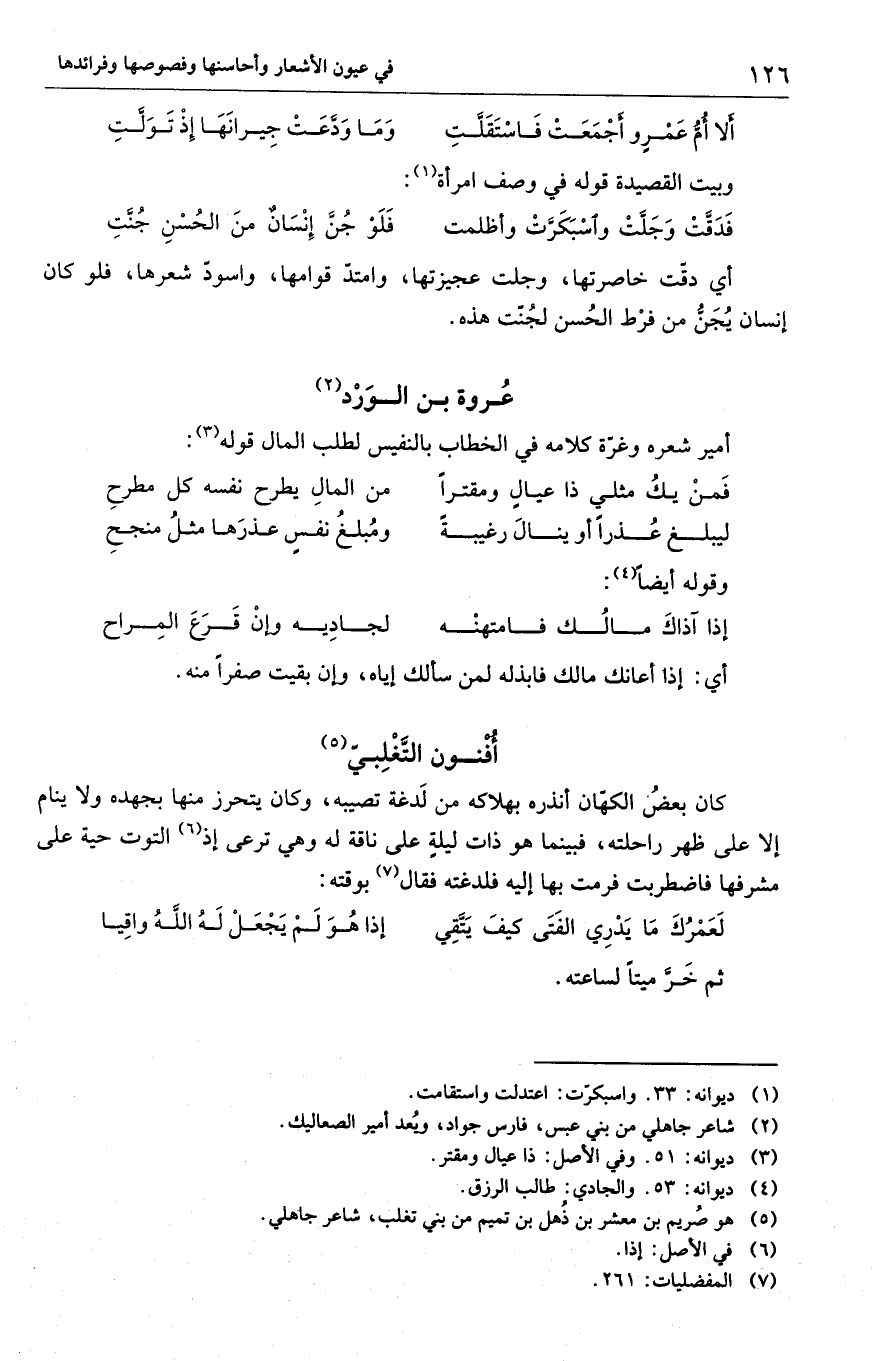 ١٢٦ في عيون الأشعار وأحاسنها وفصوصها وفرائدها
أَلا أُمُّ عَمْـرٍو أَجْمَعَـتْ فَـاسْتَقَلَّـتِ وَمَـا وَدَّعَـتْ جِيـرانَهَـا إذْ تَـوَلَّـتِ
وبيت القصيدة قوله في وصف امرأة(١):
فَدَقَّتْ وَجَلَّتْ وٱسْبَكَرَّتْ وأظلمت فَلَوْ جُنَّ إنْسَانٌ منَ الحُسْنِ جُنَّتِ
أي دقّت خاصرتها، وجلت عجيزتها، وامتدّ قوامها، واسودّ شعرها، فلو كان
إنسان يُجَنُّ من فرْط الحُسن لجُنّت هذه.
عُـروة بـن الـوَرْد(٢)
أمير شعره وغرّة كلامه في الخطاب بالنفيس لطلب المال قوله(٣):
فَمـنْ يـكُ مثلـي ذا عيـالٍ ومقتـراً من المالِ يطرح نفسه كل مطرحِ
ليبلـغ عُـذراً أو ينـالَ رغيبـةً ومُبلـغُ نفـسٍ عـذرَهـا مثـلُ منجـحِ
وقوله أيضاً(٤):
إذا آذاكَ مـالُـك فـامتهنْـه لجـاديـه وإنْ قَـرَعَ المِـراح
أي: إذا أعانك مالك فابذله لمن سألك إياه، وإن بقيت صفراً منه.
أُفْنـون التَّغْلِبـيّ(٥)
كان بعضُ الكهّان أنذره بهلاكه من لَدغة تصيبه، وكان يتحرز منها بجهده ولا ينام
إلا على ظهر راحلته، فبينما هو ذات ليلةٍ على ناقة له وهي ترعى إذ(٦) التوت حية على
مشرفها فاضطربت فرمت بها إليه فلدغته فقال(٧) بوقته:
لَعَمْرُكَ مَا يَدْرِي الفَتَى كيفَ يَتَّقِي إذا هُـوَ لَـمْ يَجْعَـلْ لَـهُ اللَّـهُ واقِيـا
ثم خَـرَّ ميتاً لساعته.
(١) ديوانه: ٣٣. واسبكرّت: اعتدلت واستقامت.
(٢) شاعر جاهلي من بني عبس، فارس جواد، ويُعد أمير الصعاليك.
(٣) ديوانه: ٥١. وفي الأصل: ذا عيال ومقتر.
(٤) ديوانه: ٥٣. والجادي: طالب الرزق.
(٥) هو صُريم بن معشر بن ذُهل بن تميم من بني تغلب، شاعر جاهلي.
(٦) في الأصل: إذا.
(٧) المفضليات: ٢٦١.